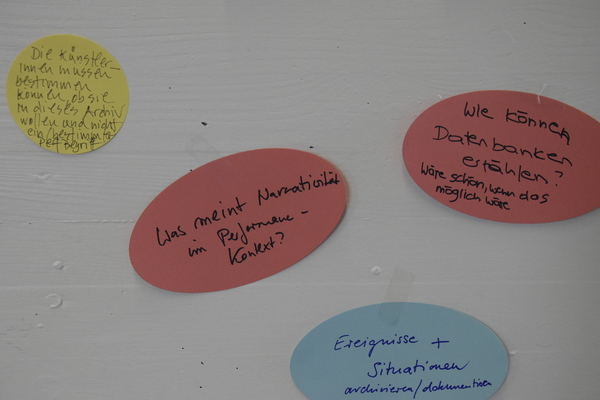 Die Künstler-
innen müssen
bestimmen
können, ob sie
in dieses Archiv
wollen und nicht
ein bestimmter
Was meint Narrativität
im Performance-
Kontext?
Wie können
Datenbanken
erzählen?
Wäre schön, wenn das
möglich wäre
Ereignisse +
Situationen
archivieren/dokumentieren